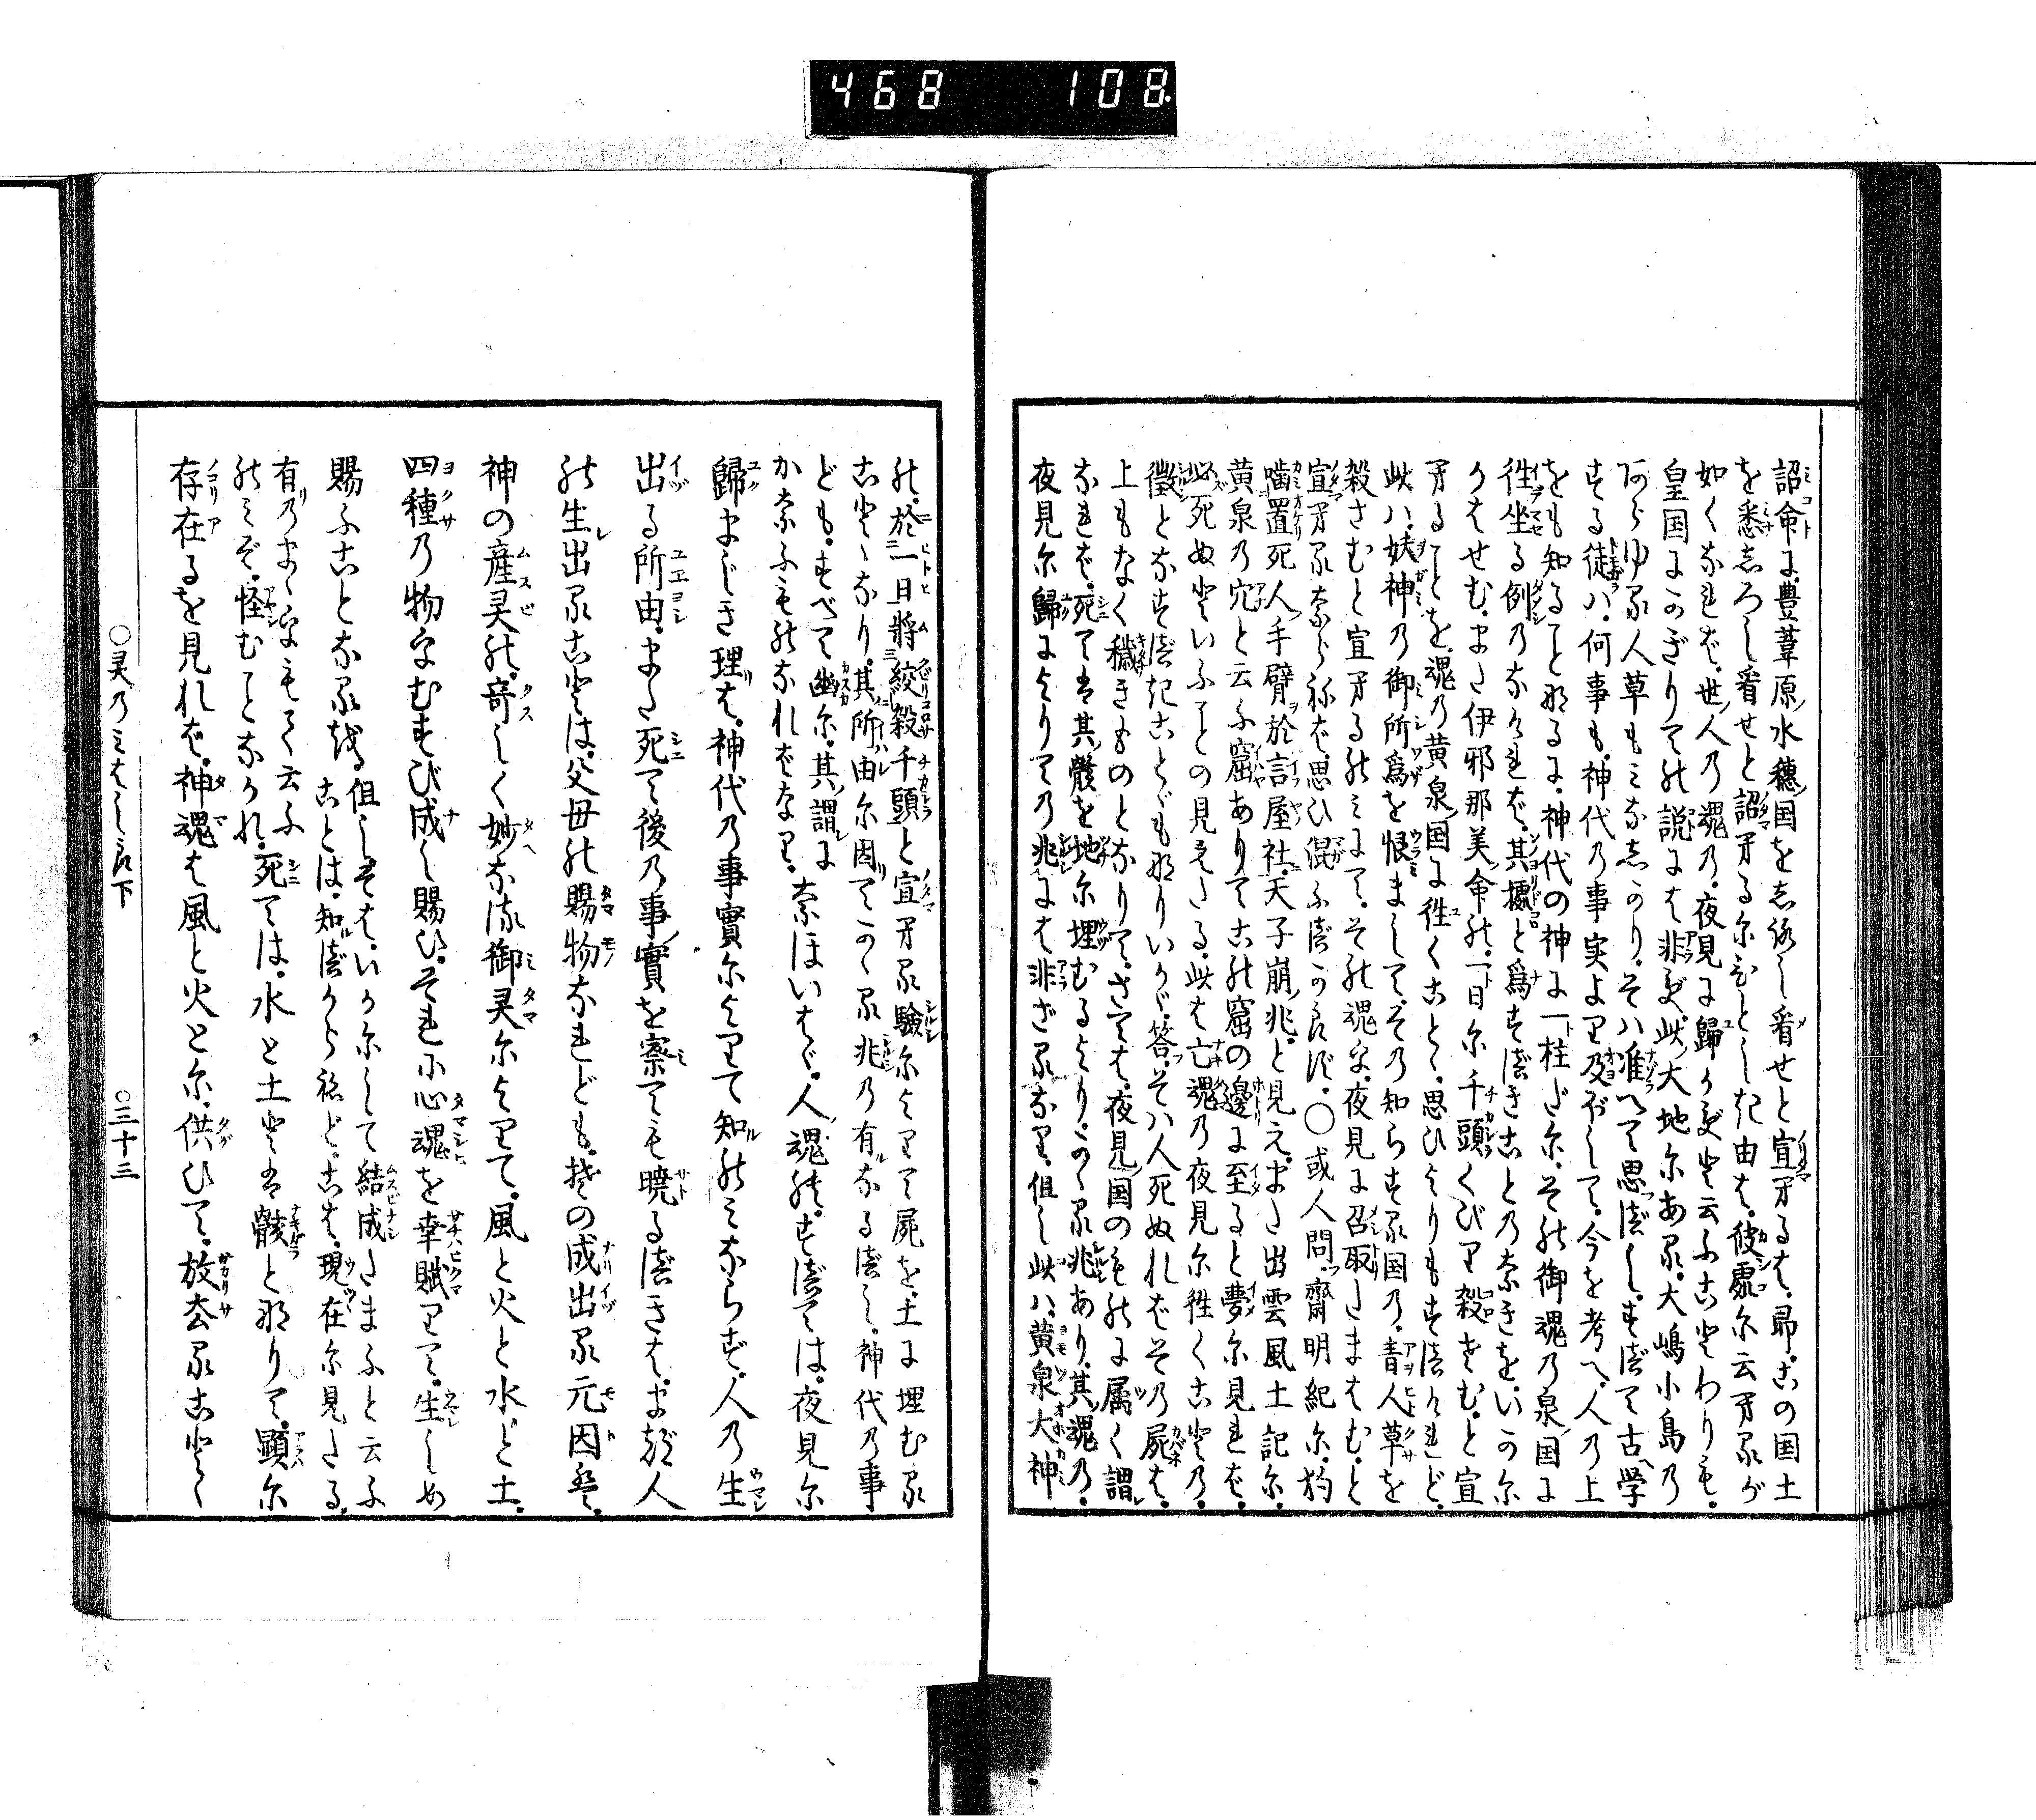 詔命に豊葦原ノ水穂ノ国をしろし看せと宣へるは、即この国土
を悉しろし看せと詔へるにひとしき由は、彼處に云へるが
如くなれば、世ノ人の魂の、夜見に歸かずと云ふことわりも、
皇国にかぎりての説には非ず、此ノ大地にある、大嶋小島の
あらゆる人草もみなしかり、そハ准へて思ふべし、すべて古ヘ学
する徒ハ、何事も、神代の事実より及ぼして、今を考へ、人の上
をも知ることなるに、神代の神に一柱だに、その御魂の泉ノ国に
徃坐る例のなければ、其據と爲すべきことのなきを、いかに
かはせむ、また伊邪那美ノ命の、一日に千頭くびり殺さむ、と宣
へることを、魂の黄泉ノ国に徃くことゝ、思ひよりもすべけれど、
此ハ、妖神の御所爲を恨まして、その知らする国の、青人草を
殺さむと宣へるのみにて、その魂を、夜見に召取たまはむ、と
宣へるならねば、思ひ混ふべからず、○或人問、齋明紀に、狗
噛置死人ノ手臂於言屋社、天子崩兆、と見え、また出雲風土記に、
黄泉の穴と云ふ窟ありてこの窟の邊に至ると夢に見れば、
必死ぬといふことの見えたる、此は亡魂の夜見に徃くことの、
徴となすべきことゞもなりいかゞ、答、そハ人死ぬればその屍は、
上もなく穢きものとなりて、さては、夜見ノ国のものに属く謂
なれば、死ては其ノ骸を地に埋むるより、かゝる兆あり、其魂の、
夜見に歸によりての兆には非ざるなり、但し此ハ、黄泉大神
の、於一日將絞殺千頭と宣へる驗によりて屍を、土に埋むる
ことゝなり、其ノ所由に因てかゝる兆の有なるべし、神代の事
ども、すべて幽に、其ノ謂に
かなふものなればなり、
なほいはゞ、人ノ魂の、すべては、夜見に
歸まじき理は、神代の事實によりて知のみならず、人の生
出る所由、また死て後の事ノ實を察ても曉るべきは、まづ人
の生出ることは、父母の賜物なれども、その成出る元因は、
神の産霊の、奇しく妙なる御霊によりて、風と火と水と土、
四種の物をむすび成し賜ひ、それに心魂を幸賦りて、生しめ
賜ふことなるを、
但しそは、いかにして結成たまふと云ふ
ことは、知べからねど、こは、現在に見たる、
有のまゝをもて云ふ
のみぞ、怪むことなかれ、
死ては、水と土とは骸となりて、顕に
存在るを見れば、神魂は風と火とに、供ひて、放去ることゝ
○霊のみはしら下
○三十三
468 108